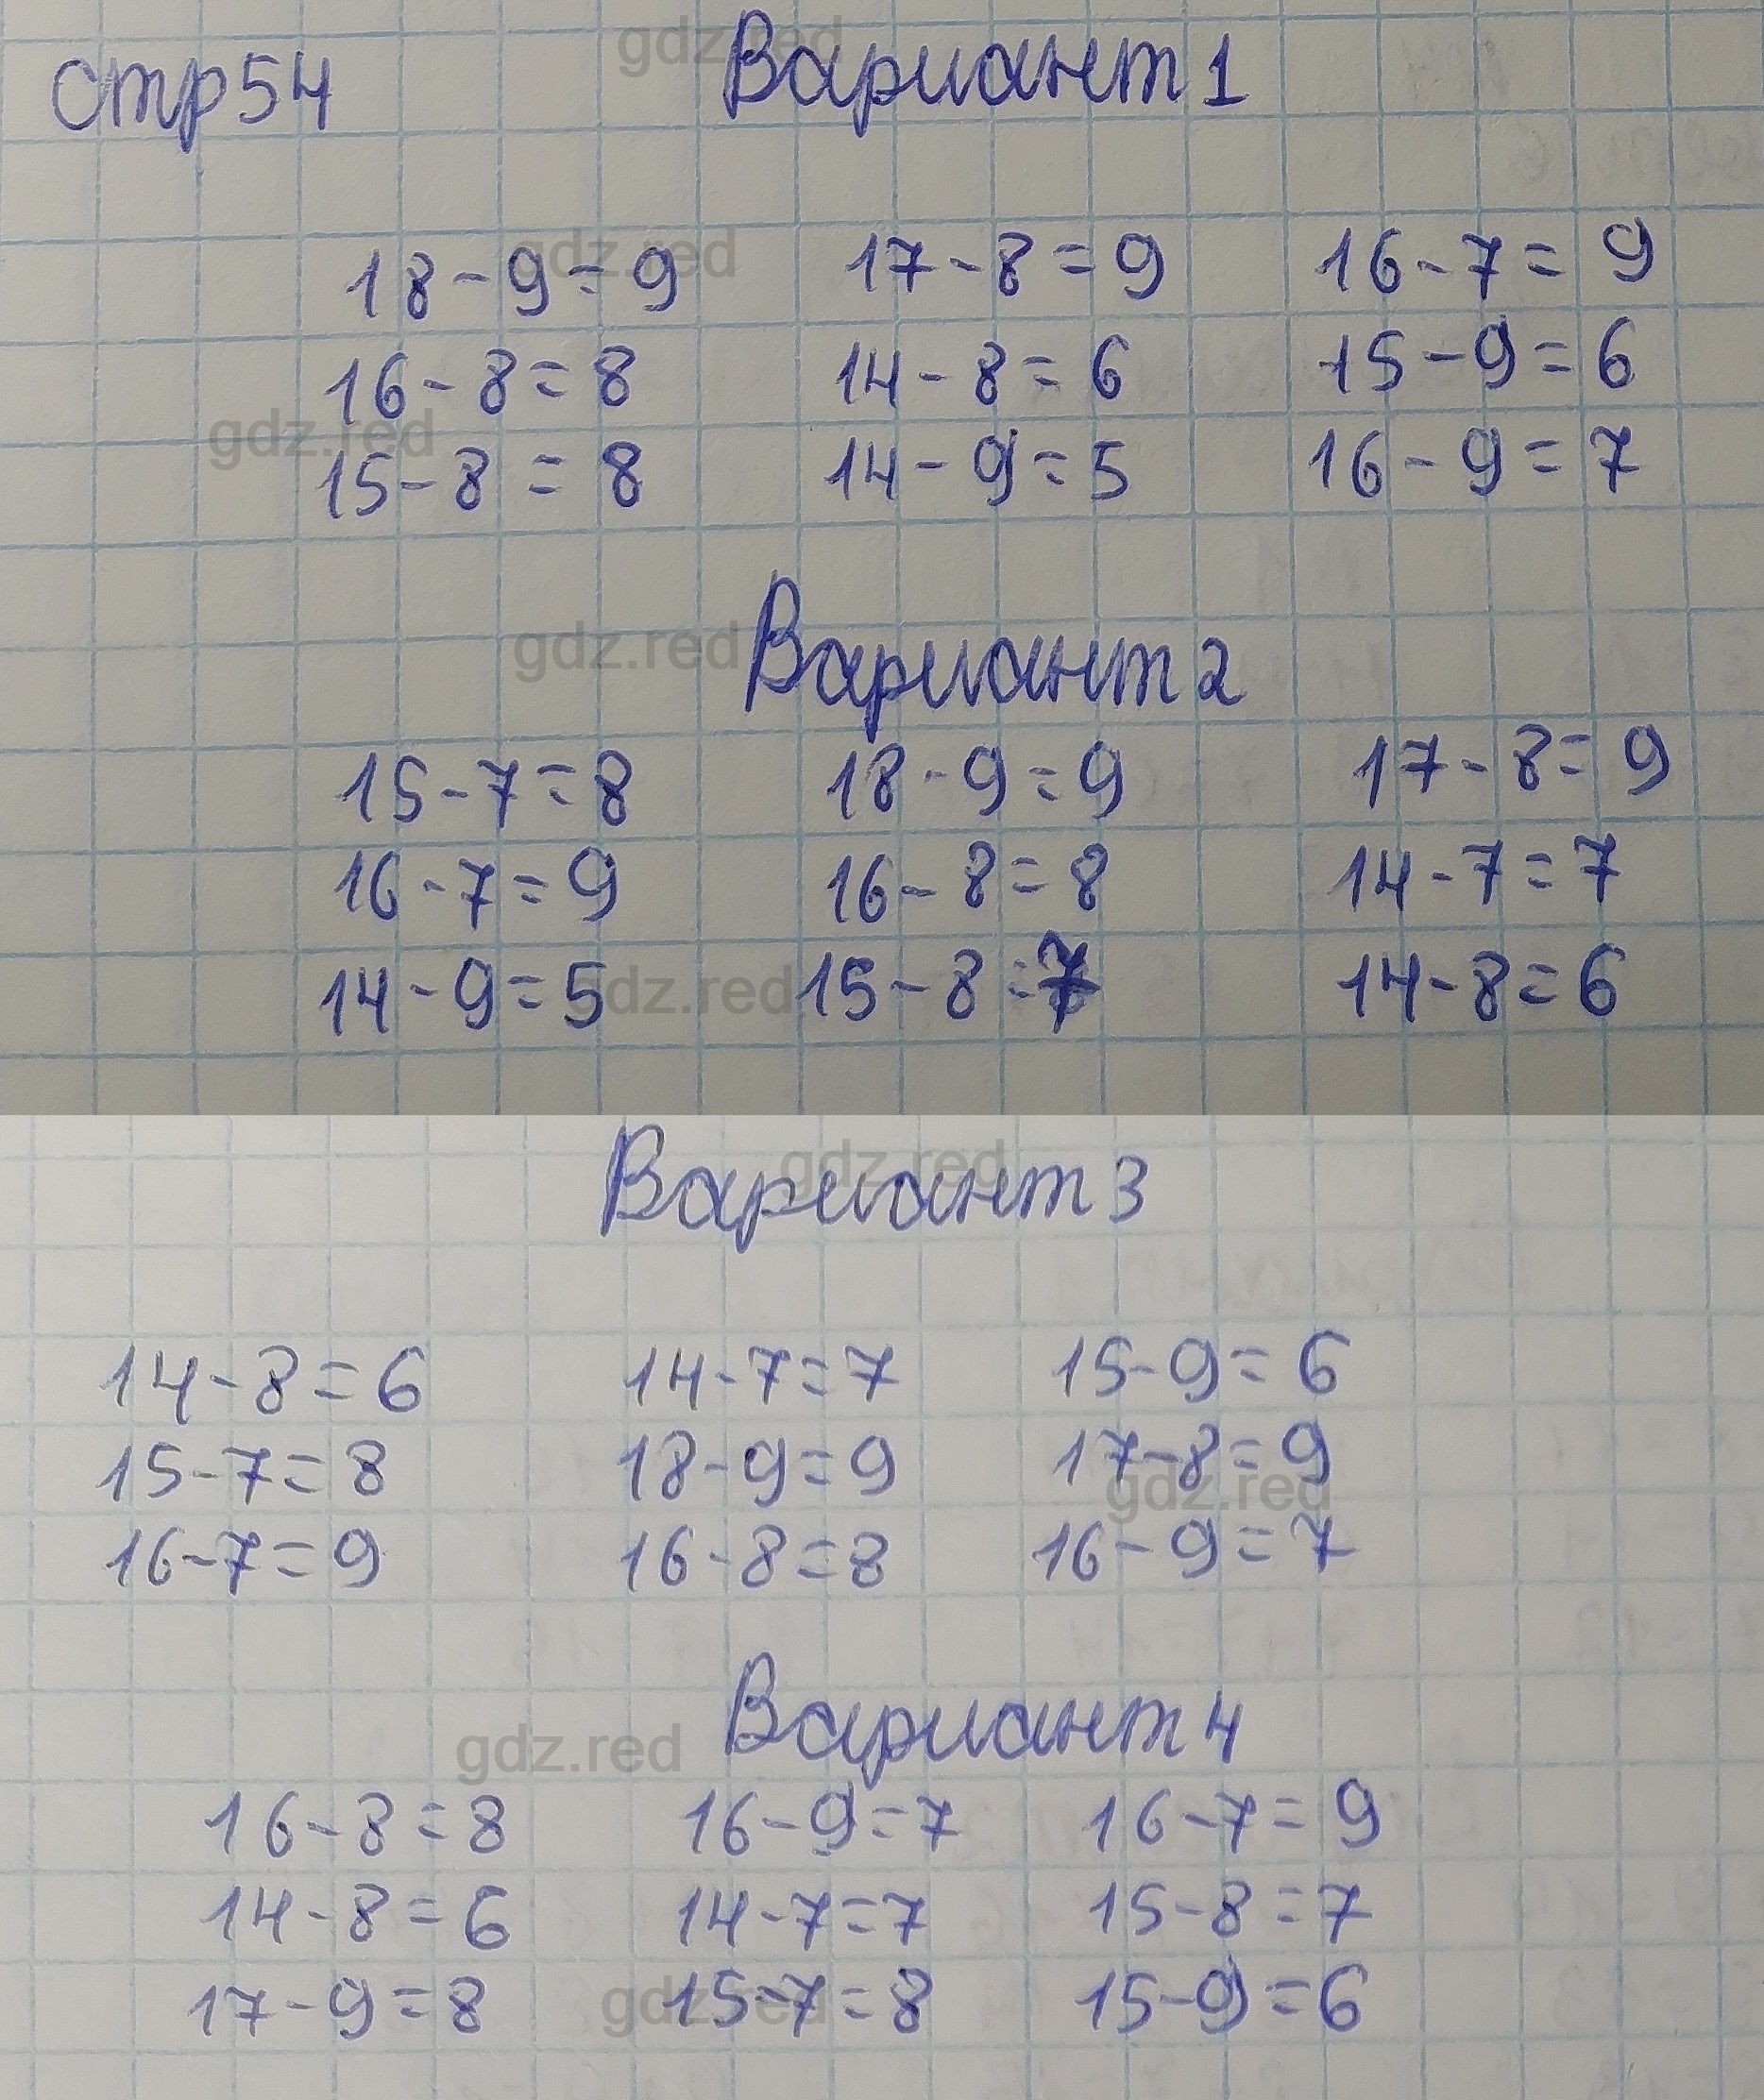 стр 54 Вариант 1
18-9=9 17-8=9 16-7=9
16-8=8 14-8=6 15-9=6
15-8=8 14-9=5 16-9=7
Вариант 2
15-7=8 18-9=9 17-8=9
16-7=9 16-8=8 14-7=7
14-9=5 15-8=7 14-8=6
Вариант 3
14-8=6 14-7=7 15-9=6
15-7=8 18-9=9 17-8=9
16-7=9 16-8=8 16-9=7
Вариант 4
16-8=8 16-9=7 16-7=9
14-8=6 14-7=7 15-8=7
17-9=8 15-7=8 15-9=6
gdz.red
gdz.red
gdz.red
gdz.red
gdz.red
gdz.red
gdz.red
gdz.red
gdz.red